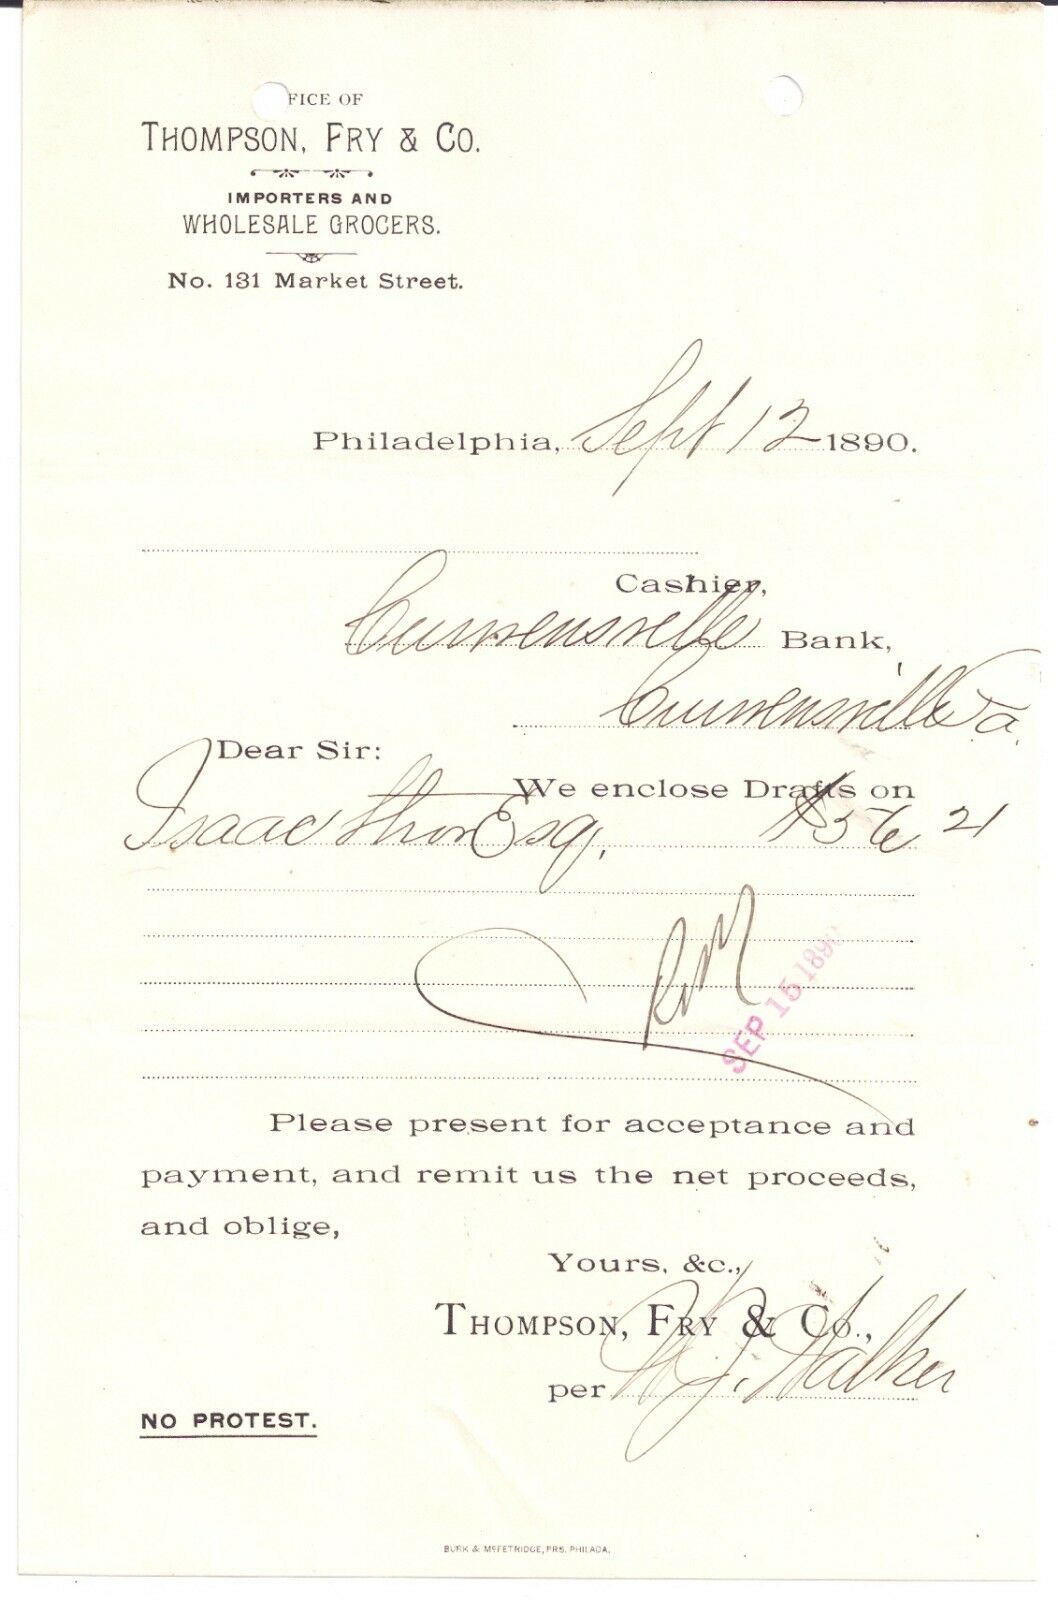 FICE OF
THOMPSON, FRY & CO.
IMPORTERS AND
WHOLESALE GROCERS.
No. 131 Market Street.
Philadelphia, Sept 12 1890.
Cashier,
Curwensville Bank,
Curwensville Pa.
Dear Sir:
We enclose Drafts on
Isaac Thom Esq. $56 21
SEP 15 1890
Please present for acceptance and
payment, and remit us the net proceeds,
and oblige,
Yours, &c.,
THOMPSON, FRY & CO.,
per W. J. Walker
NO PROTEST.
BURK & McFETRIDGE, PRS. PHILADA.